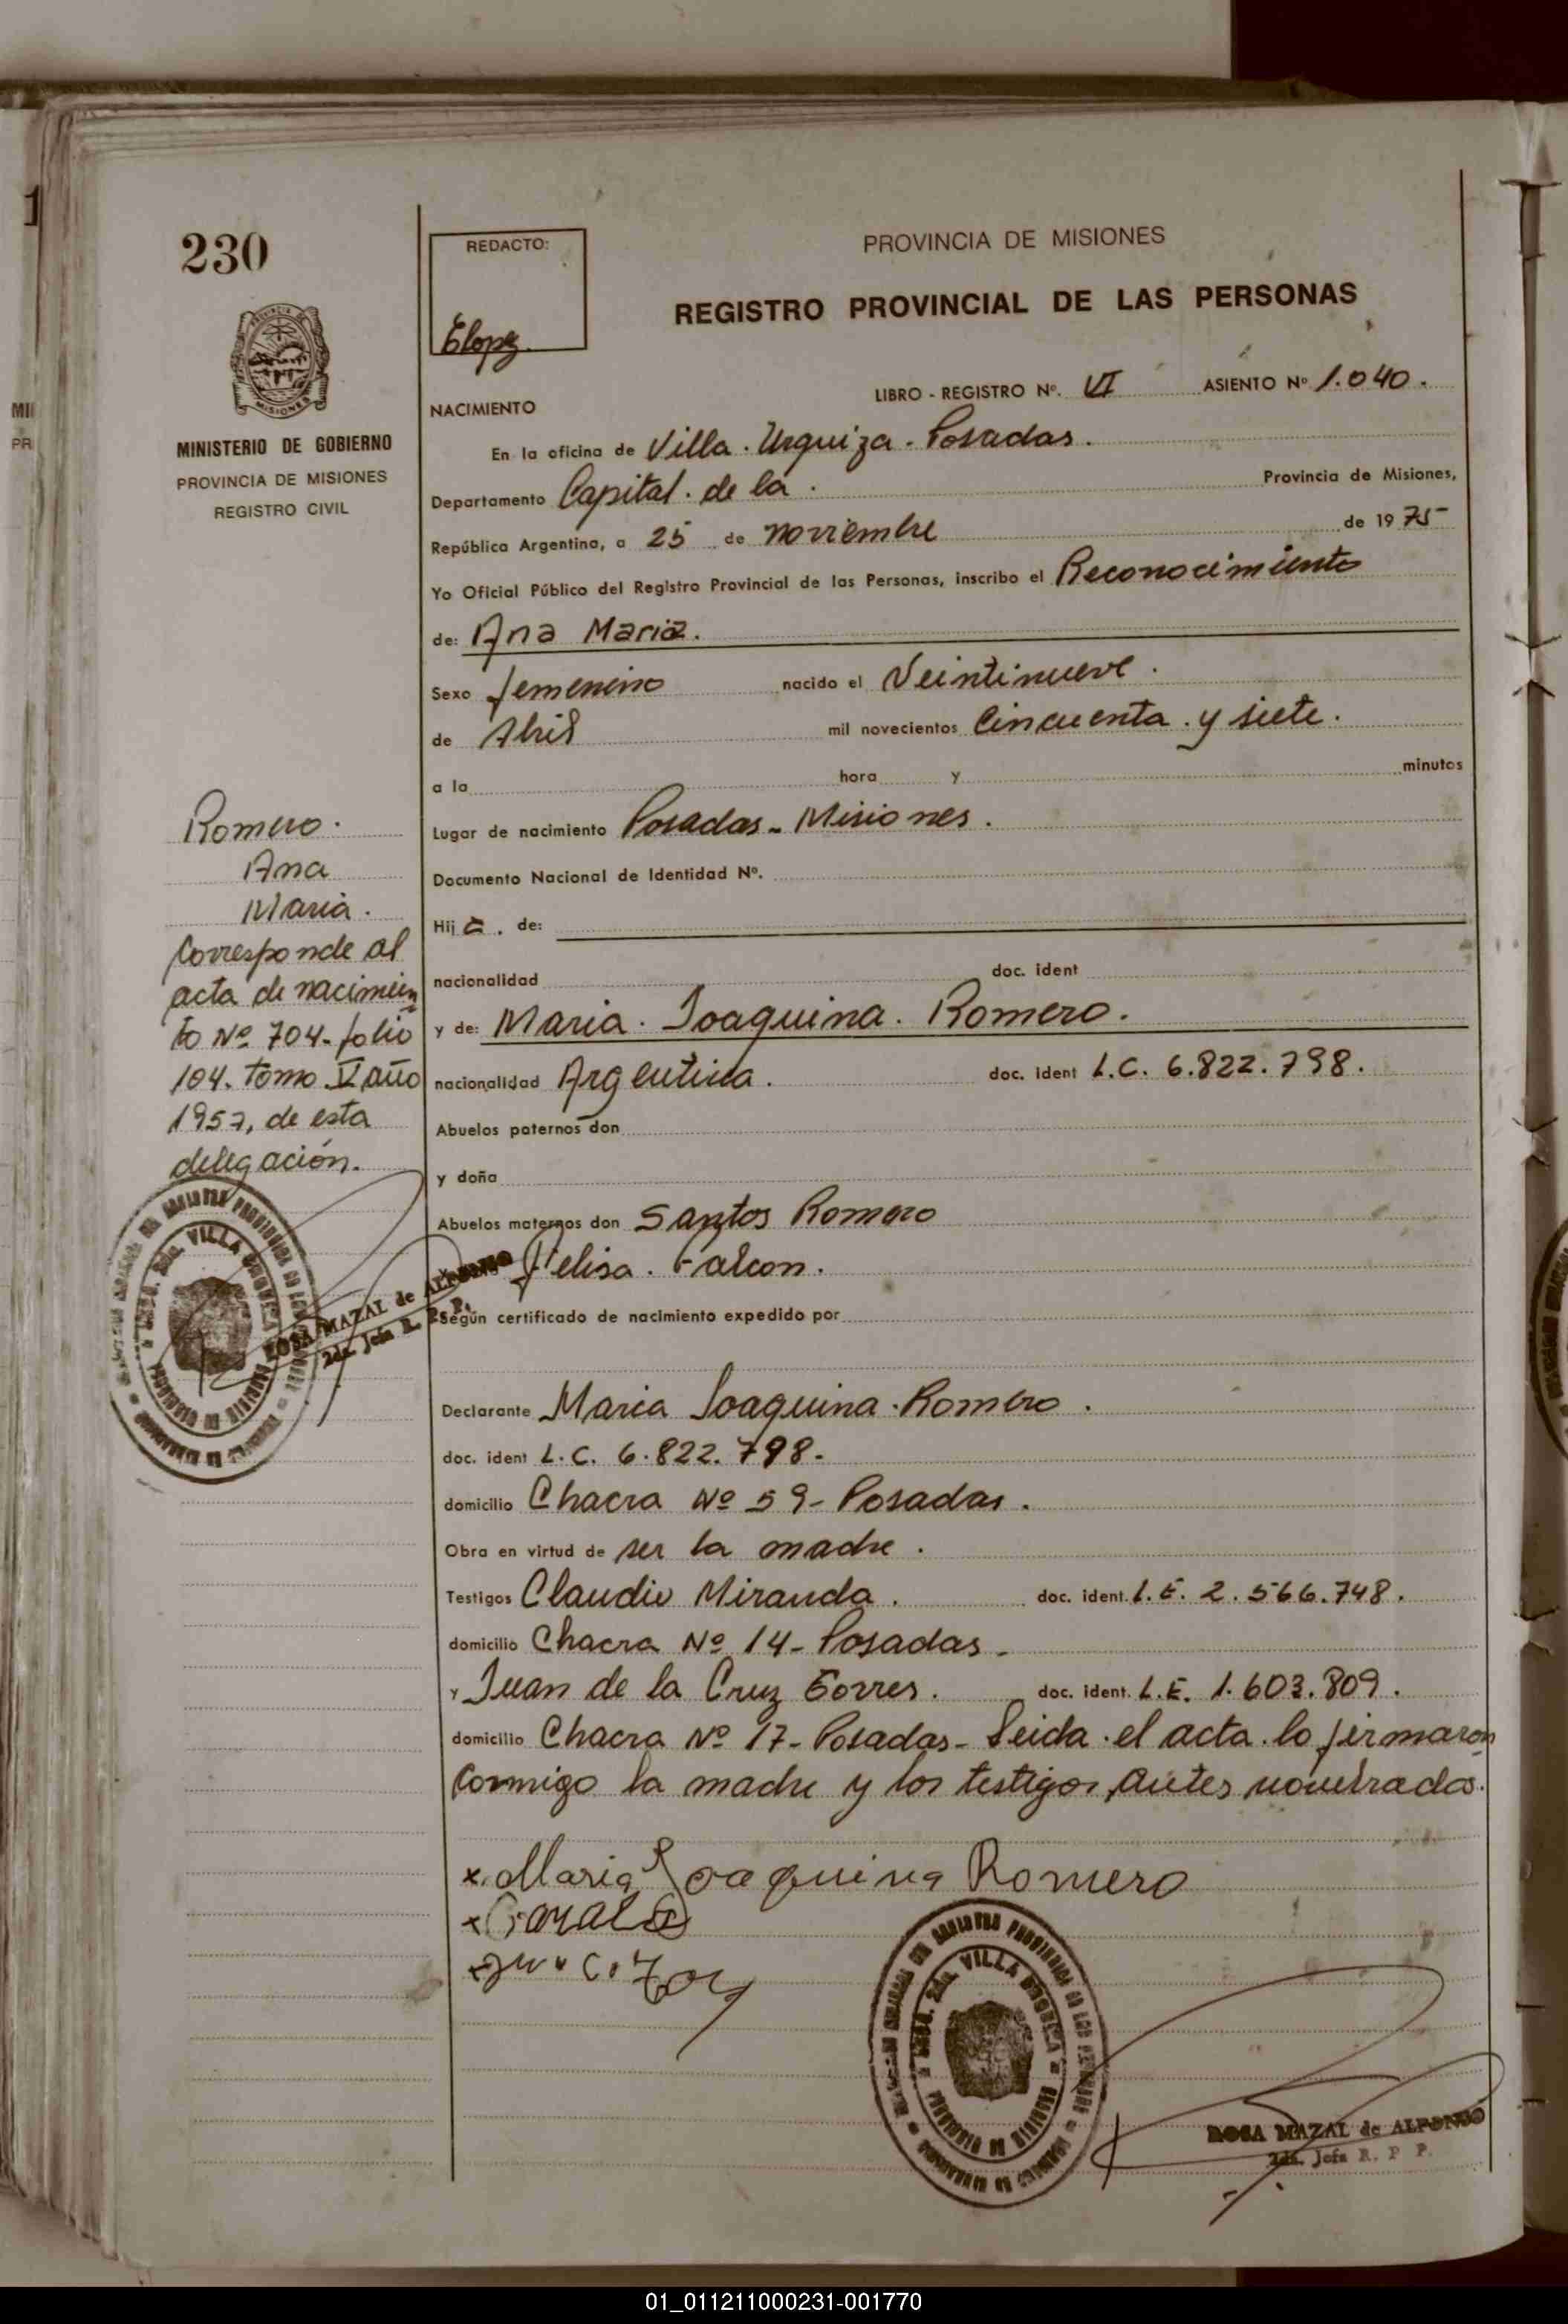 230
MINISTERIO DE GOBIERNO
PROVINCIA DE MISIONES
REGISTRO CIVIL
Romero.
Ana
Maria.
Corresponde al
acta de nacimien
to Nº 704. folio
104. tomo V año
1957, de esta
delegación.
ROSA MAZAL de ALFONSO
2da. Jefa R. P. P.
REDACTO:
Elopez.
PROVINCIA DE MISIONES
REGISTRO PROVINCIAL DE LAS PERSONAS
LIBRO - REGISTRO Nº. VI ASIENTO Nº 1.040.
NACIMIENTO
En la oficina de Villa. Urquiza. Posadas.
Departamento Capital. de la. Provincia de Misiones,
República Argentina, a 25 de noviembre de 1975
Yo Oficial Público del Registro Provincial de las Personas, inscribo el Reconocimiento
de: Ana Maria.
Sexo femenino nacido el Veintinueve.
de Abril mil novecientos Cincuenta. y siete.
a la hora y minutos
Lugar de nacimiento Posadas - Misiones.
Documento Nacional de Identidad Nº.
Hij a. de:
nacionalidad doc. ident
y de: Maria. Joaquina. Romero.
nacionalidad Argentina. doc. ident L.C. 6.822.798.
Abuelos paternos don
y doña
Abuelos maternos don Santos Romero
Felisa. Falcon.
Según certificado de nacimiento expedido por
Declarante Maria Joaquina. Romero.
doc. ident L.C. 6.822.798.
domicilio Chacra Nº 59 - Posadas.
Obra en virtud de ser la madre.
Testigos Claudio Miranda. doc. ident. L.E. 2.566.748.
domicilio Chacra Nº 14 - Posadas -
y Juan de la Cruz Torres. doc. ident. L.E. 1.603.809.
domicilio Chacra Nº 17 - Posadas - Leida. el acta. lo firmaron
conmigo la madre y los testigos, antes nombrados.
x. Maria Joaquina Romero
VILLA URQUIZA
ROSA MAZAL de ALFONSO
2da. Jefa R. P. P.
01_011211000231-001770